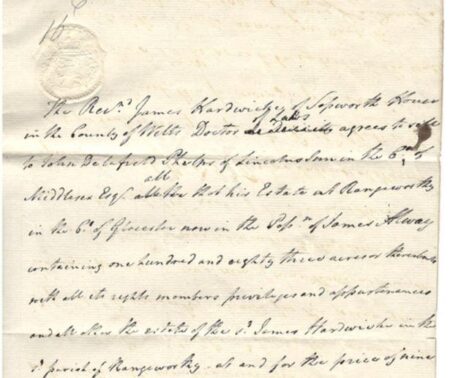 The Revd. James Hardwicke of Sopworth House
in the County of Wilts Doctor of Laws agrees to sell
to John Delafield Phelps of Lincolns Inn in the Co. of
Middlesex Esqr. all that his Estate at Rangeworthy
in the Co. of Glocester now in the Possn. of James Alway
containing one hundred and eighty three acres or thereabouts
with all its rights members privileges and appurtenances
and all other the estate of the sd. James Hardwicke in the
sd. parish of Rangeworthy at and for the price of nine